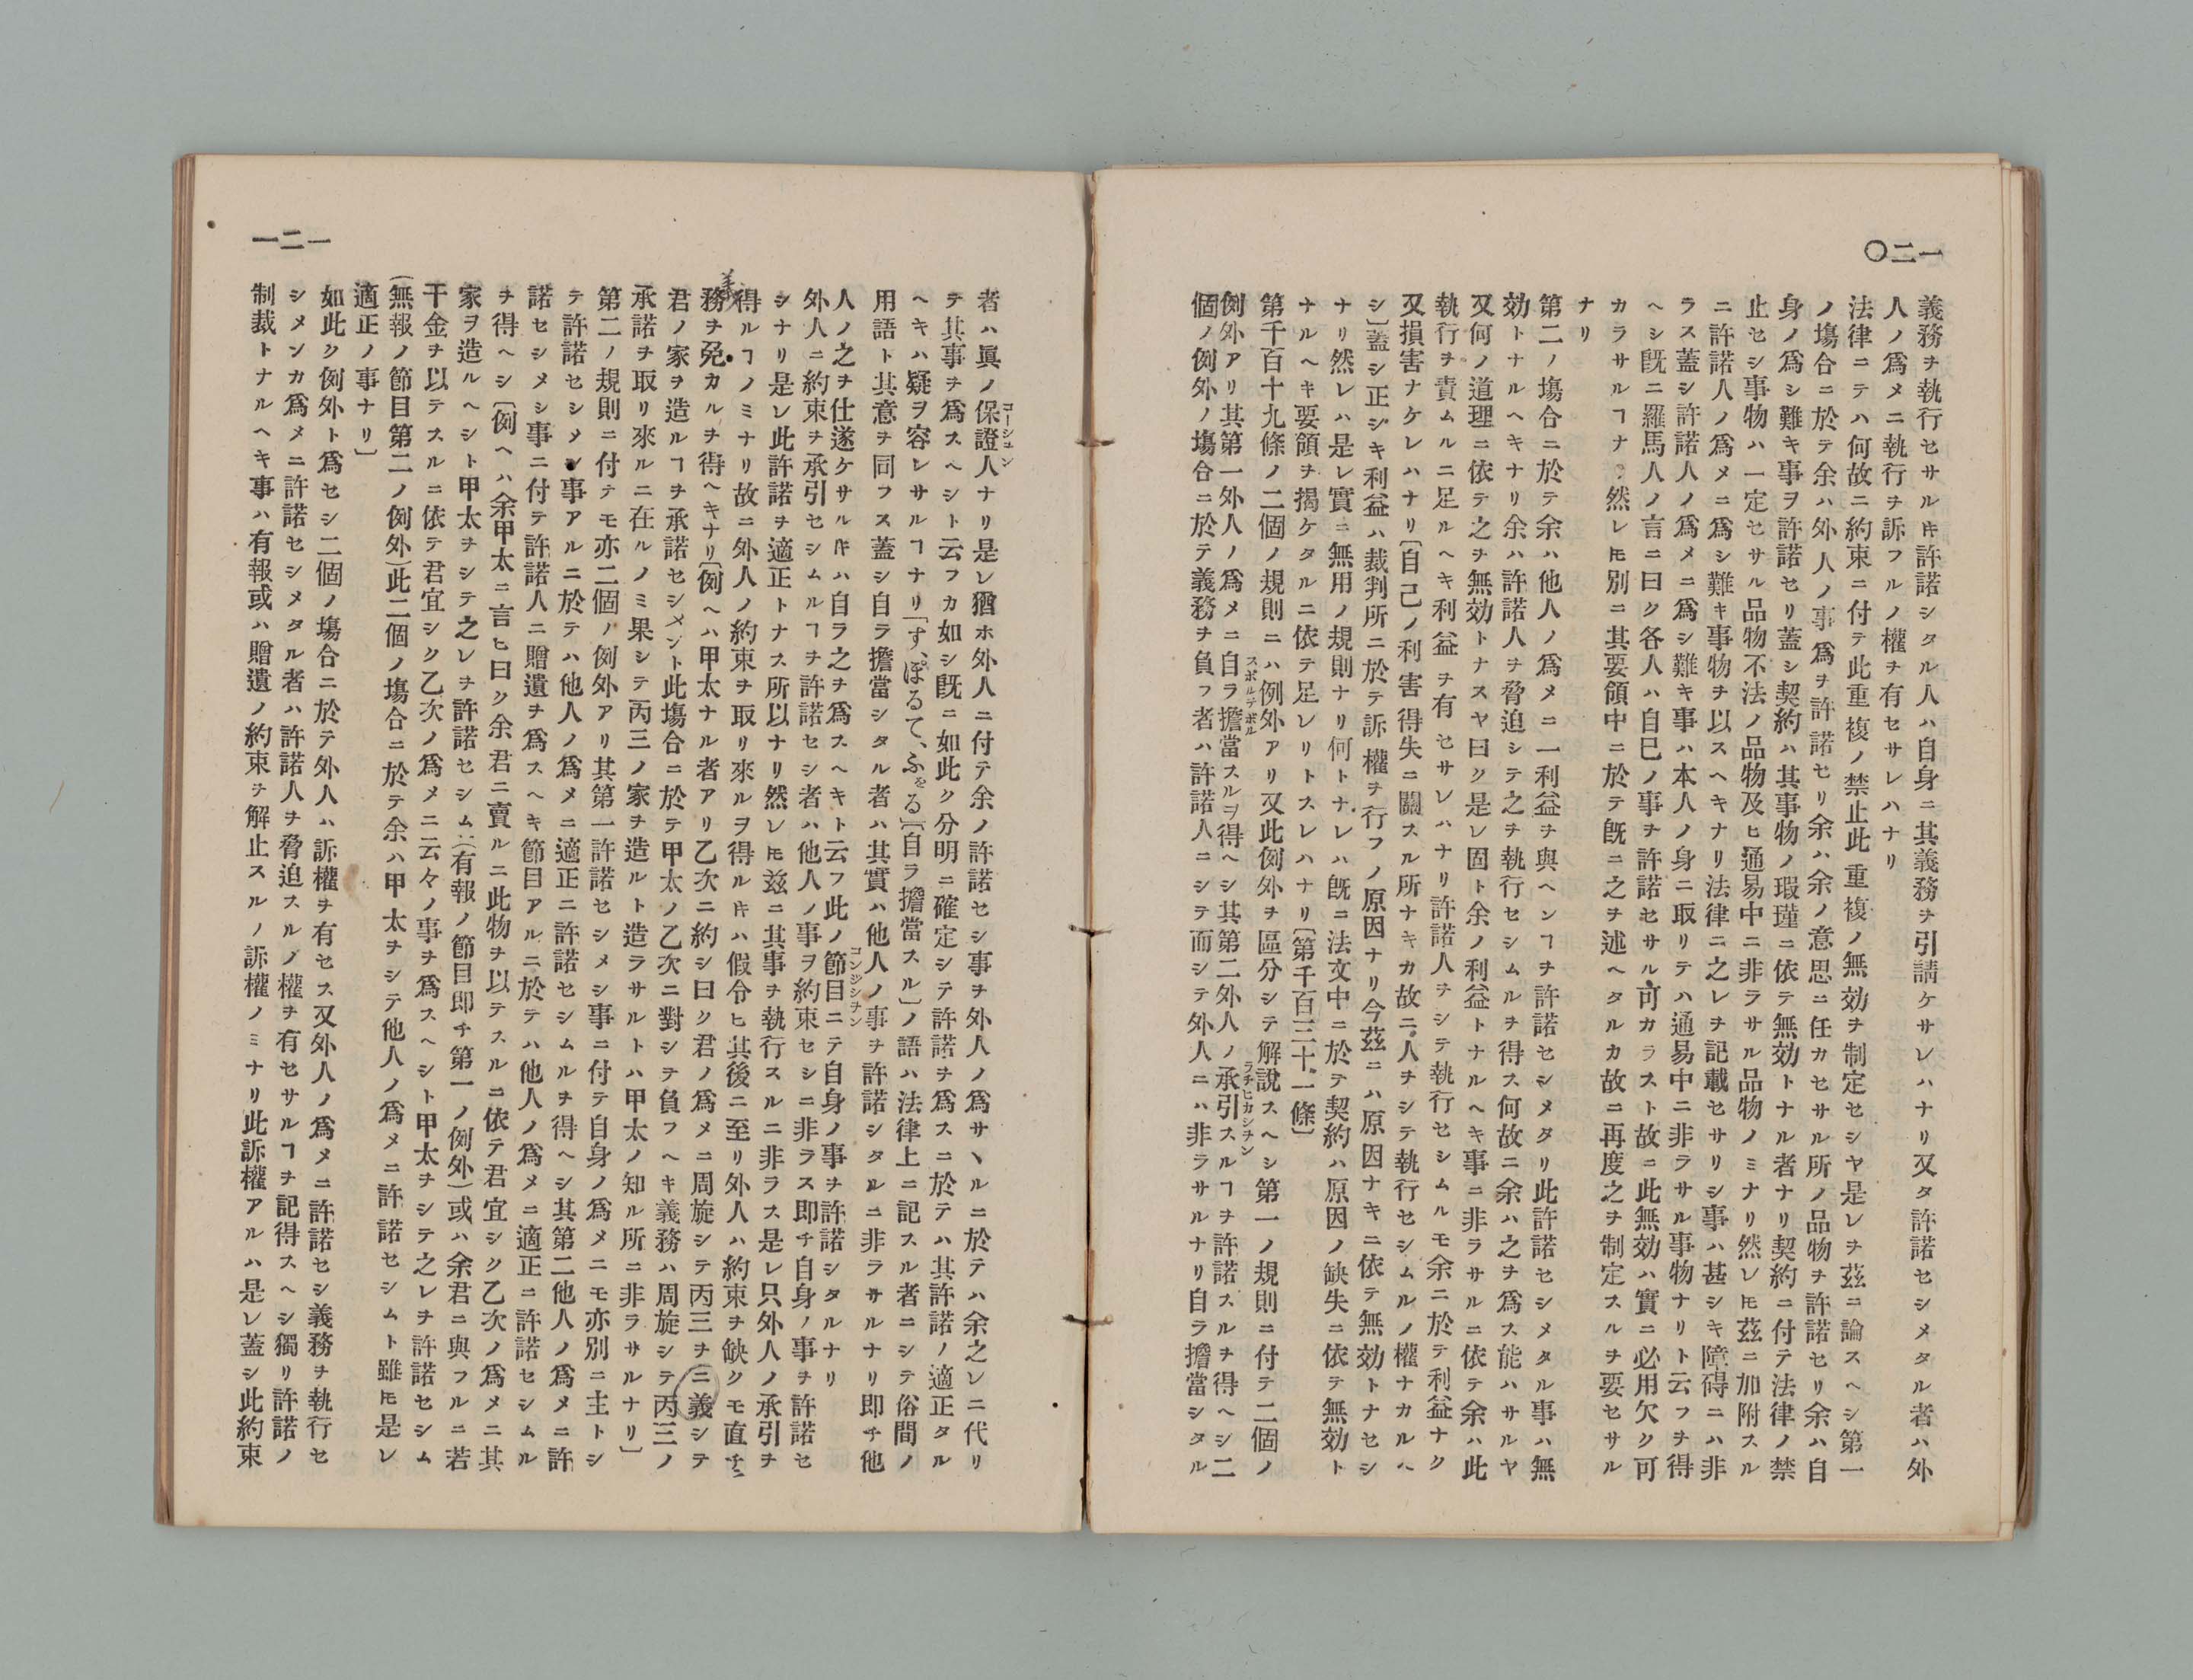 一二〇
義務ヲ執行セサルキ許諾シタル人ハ自身ニ其義務ヲ引請ケサレハナリ又タ許諾セシメタル者ハ外
人ノ爲メニ執行ヲ訴フルノ權ヲ有セサレハナリ
法律ニテハ何故ニ約束ニ付テ此重複ノ禁止此重複ノ無効ヲ制定セシヤ是レヲ茲ニ論スヘシ第一
ノ塲合ニ於テ余ハ外人ノ事爲ヲ許諾セリ余ハ余ノ意思ニ任カセサル所ノ品物ヲ許諾セリ余ハ自
身ノ爲シ難キ事ヲ許諾セリ蓋シ契約ハ其事物ノ瑕瑾ニ依テ無効トナル者ナリ契約ニ付テ法律ノ禁
止セシ事物ハ一定セサル品物不法ノ品物及ヒ通易中ニ非ラサル品物ノミナリ然レ𪜈茲ニ加附スル
ニ許諾人ノ爲メニ爲シ難キ事物ヲ以スヘキナリ法律ニ之レヲ記載セサリシ事ハ甚シキ障碍ニハ非
ラス蓋シ許諾人ノ爲メニ爲シ難キ事ハ本人ノ身ニ取リテハ通易中ニ非ラサル事物ナリト云フヲ得
ヘシ旣ニ羅馬人ノ言ニ曰ク各人ハ自己ノ事ヲ許諾セサル可カラスト故ニ此無効ハ實ニ必用欠ク可
カラサルヿナ然レ𪜈別ニ其要領中ニ於テ旣ニ之ヲ述ヘタルカ故ニ再度之ヲ制定スルヲ要セサル
ナリ
第二ノ塲合ニ於テ余ハ他人ノ爲メニ一利益ヲ與ヘンヿヲ許諾セシメタリ此許諾セシメタル事ハ無
効トナルヘキナリ余ハ許諾人ヲ脅迫シテ之ヲ執行セシムルヲ得ス何故ニ余ハ之ヲ爲ス能ハサルヤ
又何ノ道理ニ依テ之ヲ無効トナスヤ曰ク是レ固ト余ノ利益トナルヘキ事ニ非ラサルニ依テ余ハ此
執行ヲ責ムルニ足ルヘキ利益ヲ有セサレハナリ許諾人ヲシテ執行セシムルモ余ニ於テ利益ナク
又損害ナケレハナリ〔自己ノ利害得失ニ關スル所ナキカ故ニ人ヲシテ執行セシムルノ權ナカルヘ
シ〕蓋シ正シキ利益ハ裁判所ニ於テ訴權ヲ行フノ原因ナリ今茲ニハ原因ナキニ依テ無効トナセシ
ナリ然レハ是レ實ニ無用ノ規則ナリ何トナレハ旣ニ法文中ニ於テ契約ハ原因ノ缺失ニ依テ無効ト
ナルヘキ要領ヲ揭ケタルニ依テ足レリトスレハナリ〔第千百三十一條〕
第千百十九條ノ二個ノ規則ニハ例外アリ又此例外ヲ區分シテ解說スヘシ第一ノ規則ニ付テ二個ノ
例外アリ其第一外人ノ爲メニ自ラ擔當スルヲ得ヘシ其第二外人ノ承引スルヿヲ許諾スルヲ得ヘシ二
個ノ例外ノ塲合ニ於テ義務ヲ負フ者ハ許諾人ニシテ而シテ外人ニハ非ラサルナリ自ラ擔當シタル
一二一
者ハ眞ノ保證人ナリ是レ猶ホ外人ニ付テ余ノ許諾セシ事ヲ外人ノ爲サヽルニ於テハ余之レニ代リ
テ其事ヲ爲スヘシト云フカ如シ旣ニ如此ク分明ニ確定シテ許諾ヲ爲スニ於テハ其許諾ノ適正タル
ヘキハ疑ヲ容レサルヿナリ「す、ぽるて、ふをる」〔自ラ擔當スル〕ノ語ハ法律上ニ記スル者ニシテ俗間ノ
用語ト其意ヲ同フス蓋シ自ラ擔當シタル者ハ其實ハ他人ノ事ヲ許諾シタルニ非ラサルナリ即チ他
人ノ之ヲ仕遂ケサルキハ自ラ之ヲ爲スヘキト云フ此ノ節目ニテ自身ノ事ヲ許諾シタルナリ
外人ニ約束ヲ承引セシムルヿヲ許諾セシ者ハ他人ノ事ヲ約束セシニ非ラス即チ自身ノ事ヲ許諾セ
シナリ是レ此許諾ヲ適正トナス所以ナリ然レ𪜈茲ニ其事ヲ執行スルニ非ラス是レ只外人ノ承引ヲ
得ルヿノミナリ故ニ外人ノ約束ヲ取リ來ルヲ得ルキハ假令ヒ其後ニ至リ外人ハ約束ヲ缺クモ直チニ
義務ヲ免カルヲ得ヘキナリ〔例ヘハ甲太ナル者アリ乙次ニ約シ曰ク君ノ爲メニ周旋シテ丙三ヲニ義シテ
君ノ家ヲ造ルヿヲ承諾セシメント此塲合ニ於テ甲太ノ乙次ニ對シテ負フヘキ義務ハ周旋シテ丙三ノ
承諾ヲ取リ來ルニ在ルノミ果シテ丙三ノ家ヲ造ルト造ラサルトハ甲太ノ知ル所ニ非ラサルナリ〕
第二ノ規則ニ付テモ亦二個ノ例外アリ其第一許諾セシメシ事ニ付テ自身ノ爲メニモ亦別ニ主トシ
テ許諾セシメシ事アルニ於テハ他人ノ爲メニ適正ニ許諾セシムルヲ得ヘシ其第二他人ノ爲メニ許
諾セシメシ事ニ付テ許諾人ニ贈遺ヲ爲スヘキ節目アルニ於テハ他人ノ爲メニ適正ニ許諾セシムル
ヲ得ヘシ〔例ヘハ余甲太ニ言ヒ曰ク余君ニ賣ルニ此物ヲ以テスルニ依テ君宜シク乙次ノ爲メニ其
家ヲ造ルヘシト甲太ヲシテ之レヲ許諾セシム(有報ノ節目即チ第一ノ例外)或ハ余君ニ與フルニ若
干金ヲ以テスルニ依テ君宜シク乙次ノ爲メニ云々ノ事ヲ爲スヘシト甲太ヲシテ之レヲ許諾セシム
(無報ノ節目第二ノ例外)此二個ノ塲合ニ於テ余ハ甲太ヲシテ他人ノ爲メニ許諾セシムト雖𪜈是レ
適正ノ事ナリ〕
如此ク例外ト爲セシ二個ノ塲合ニ於テ外人ハ訴權ヲ有セス又外人ノ爲メニ許諾セシ義務ヲ執行セ
シメンカ爲メニ許諾セシメタル者ハ許諾人ヲ脅迫スルノ權ヲ有セサルヿヲ記得スヘシ獨リ許諾ノ
制裁トナルヘキ事ハ有報或ハ贈遺ノ約束ヲ解止スルノ訴權ノミナリ此訴權アルハ是レ蓋シ此約束